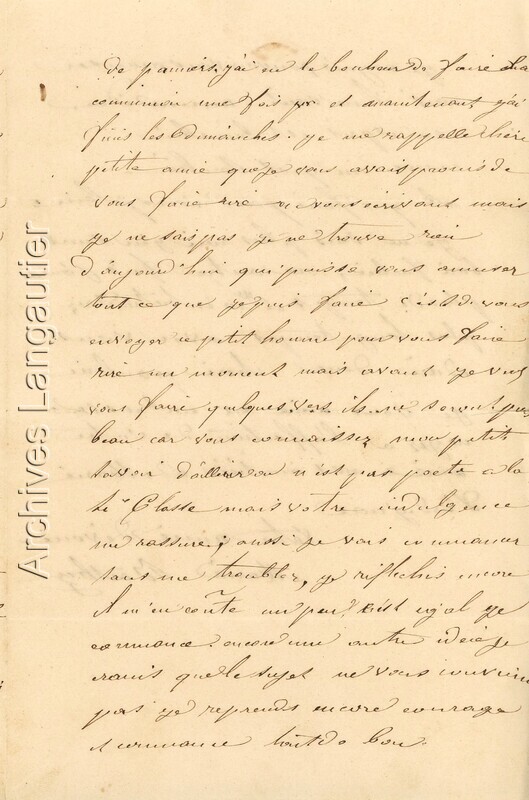 de pamiers. j'ai eu le bonheur de faire la
communion une fois pr et maintenant j'ai
finis les Dimanches. je me rappelle chère
petite amie que je vous avais promis de
vous faire rire en vous écrivant mais
je ne sais pas je ne trouve rien
d'aujourd'hui qui puisse vous amuser
tout ce que je puis faire c'est de vous
envoyer ce petit homme pour vous faire
rire un moment mais avant je veux
vous faire quelques vers ils ne seront pas
beau car vous connaissez mon petit
savoir d'ailleurs on n'est pas poete a la
Classe mais votre indulgence
me rassure; aussi je vais commancer
sans me troubler, je réflechis encore
il m'en coûte un peu! c'est egal je
commance encore une autre idée je
crains que le sujet ne vous convienne
pas je reprends encore courage
et commance tout de bon.
Archives Langautier